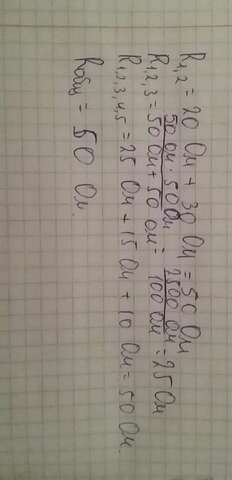 R1,2 = 20 Ом + 30 Ом = 50 Ом
R1,2,3 = 50 Ом · 50 Ом / 50 Ом + 50 Ом = 2500 Ом / 100 Ом = 25 Ом
R1,2,3,4,5 = 25 Ом + 15 Ом + 10 Ом = 50 Ом.
Rобщ = 50 Ом